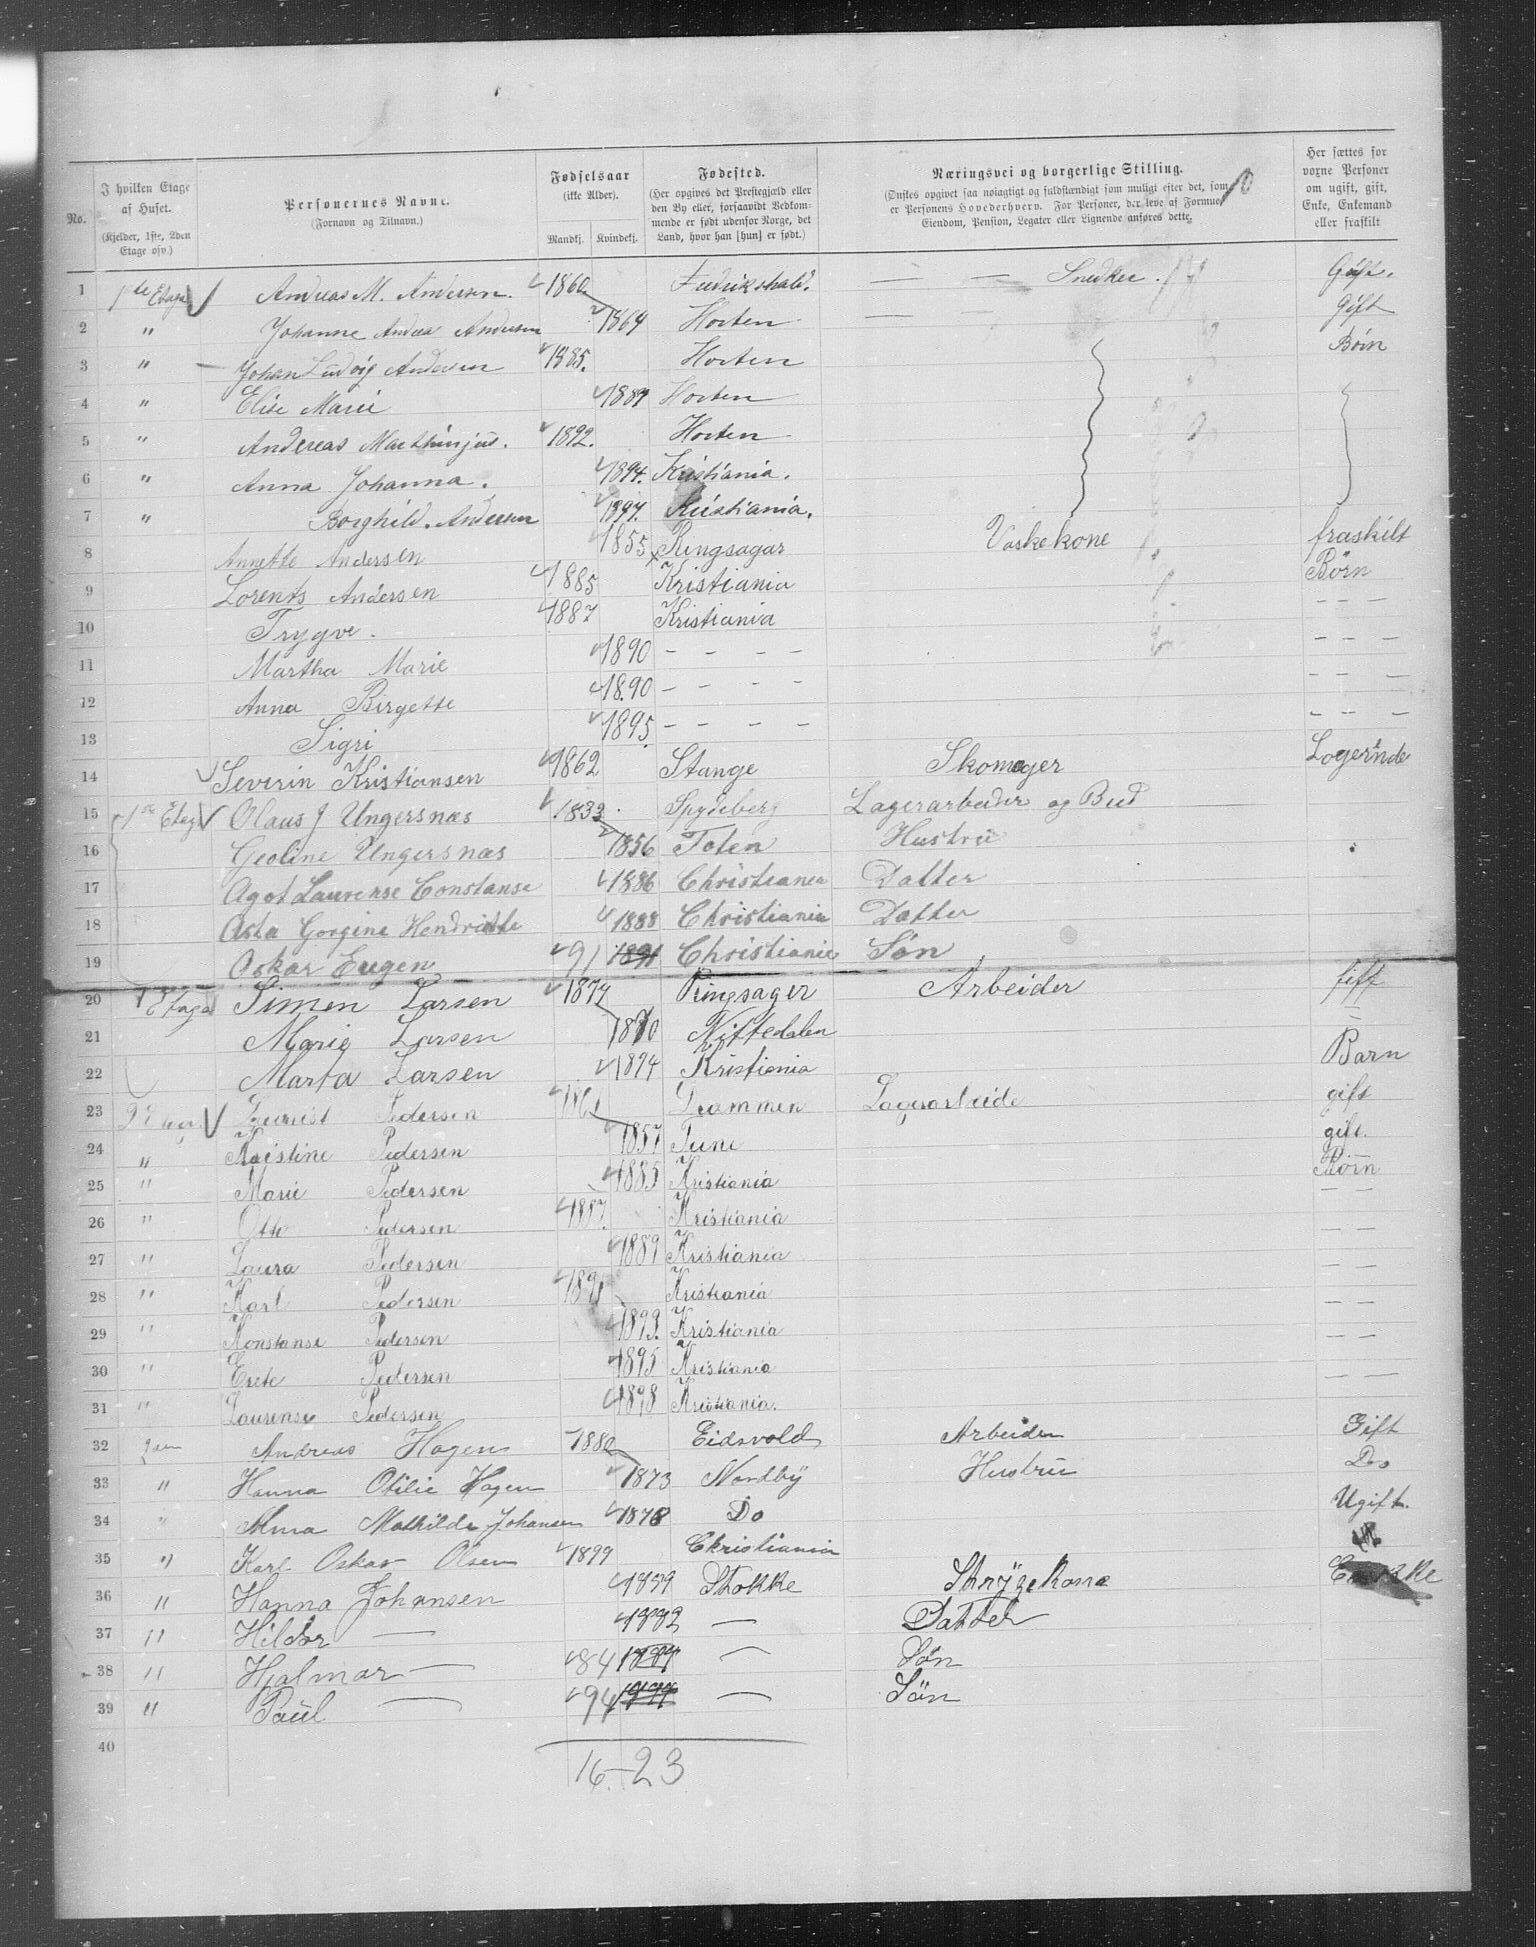 No.
I hvilken Etage af Huset. (Kjelder, 1ste, 2den Etage osv.)
Personernes Navne. (Fornavn og Tilnavn.)
Fødselsaar (ikke Alder). Mandkj. Kvindekj.
Fødested. (Her opgives det Prestegjæld eller den By eller, forsaavidt Vedkommende er født udenfor Norge, det Land, hvor han [hun] er født.)
Næringsvei og borgerlige Stilling. (Ønskes opgivet saa nøiagtigt og fuldstændigt som muligt efter det, som er Personens Hovederhverv. For Personer, der leve af Formue, Eiendom, Pension, Legater eller Lignende anføres dette.
Her sættes for vorne Personer om ugift, gift, Enke, Enkemand eller fraskilt
1 1ste Etage Andreas M. Andersen. 1860. Fredrikshald. — — Snedker. Gift.
2 " Johanne Andrea Andersen 1864 Horten — — Gift
3 " Johan Ludvig Andersen 1885. Horten Børn
4 " Elise Marie 1889 Horten
5 " Andreas Marthinjus. 1892. Horten
6 " Anna Johanna. 1894. Kristiania.
7 " Borghild. Andersen 1897. Kristiania.
8 Annette Andersen 1855 Ringsagar Vaskekone fraskilt
9 Lorents Andersen 1885 Kristiania Børn
10 Trygve. 1887 Kristiania - - -
11 Martha Marie 1890 - - - - - - -
12 Anna Birgette 1890 - - - - - - -
13 Sigri 1895 - - - - - - -
14 Severin Kristiansen 1862 Stange Skomager Logernde
15 1ste Etage Olaus J Ungersnæs 1832 Spydeberg Lagerarbeider og Bud
16 Geoline Ungersnæs 1856 Toten Hustru
17 Agot Laurense Constanse 1886 Christiania Datter
18 Asta Gorgine Hendriette 1888 Christiania Datter
19 Oskar Eugen 91 1891 Christiania Søn
20 1 Etage Simen Larsen 1874 Ringsager Arbeider gift
21 Marie Larsen 1870 Nittedalen -
22 Marta Larsen 1894 Kristiania Barn
23 2 Etag Pedersen 1861 Drammen Lagerarbeide gift
24 " Kristine Pedersen 1857 Tune gift.
25 " Marie Pedersen 1885 Kristiania Børn
26 " Otto Pedersen 1887. Kristiania - -
27 " Laura Pedersen 1889 Kristiania - -
28 " Karl Pedersen 1891 Kristiania - -
29 " Konstanse Pedersen 1893. Kristiania - -
30 " Grete Pedersen 1895 Kristiania - -
31 " Laurense Pedersen 1898 Kristiania. - -
32 2den Andreas Hagen 1880 Eidsvold Arbeider Gift
33 " Hanna Otilie Hagen 1873 Nordby Hustru Do
34 " Alma Mathilde Johansen 1878 Do Ugift.
35 " Karl Oskar Olsen 1899 Christiania
36 " Hanna Johansen 1859 Stokke Strygekone Enke
37 " Hildor — 1882 — Datter
38 " Hjalmar — 84 1884 — Søn
39 " Paul — 94 1894 — Søn
40
16-23